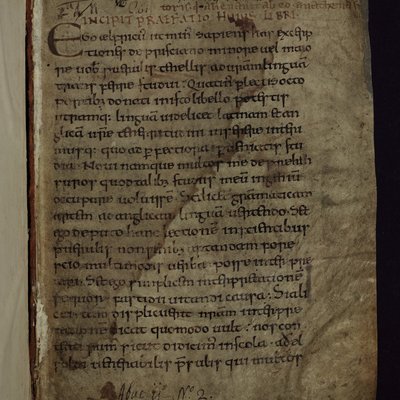 INCIPIT PRAEFATIO HUIUS LIBRI
Ego ælfricus ut minus sapiens has excerp
tiones de prisciano minore vel maio
re vob puerulis tenellis ad vr̄am linguā
transferre studui. Quatin' plectis octo
partib; donati in isto libello potestis
utramq; linguā videlicet latinam et an
glicam vr̄e teneritudini inserere interi
musq; quo ad pfectiora pveniatis stu
dia. Noui namque multos me repreh
suros quod talib; studiis meū ingeniū
occupare voluissē. Scilic& gramaticam
artem ad anglicam linguā vertendo. Sed
ego deputo hanc lectionem inscientibus
puerulis non senib; aptandam fore
scio multimodis verba posse interpre
tari. Sed ego simplicem interpretationē
sequor fastidii vitandi causa. Si ali
cui tam displicuerit nr̄am interpre
tationē dicat quomodo vult. nos con
tenti sum' sicut didicim' in scola adel
woldi venerabilis p̄sulis qui multos